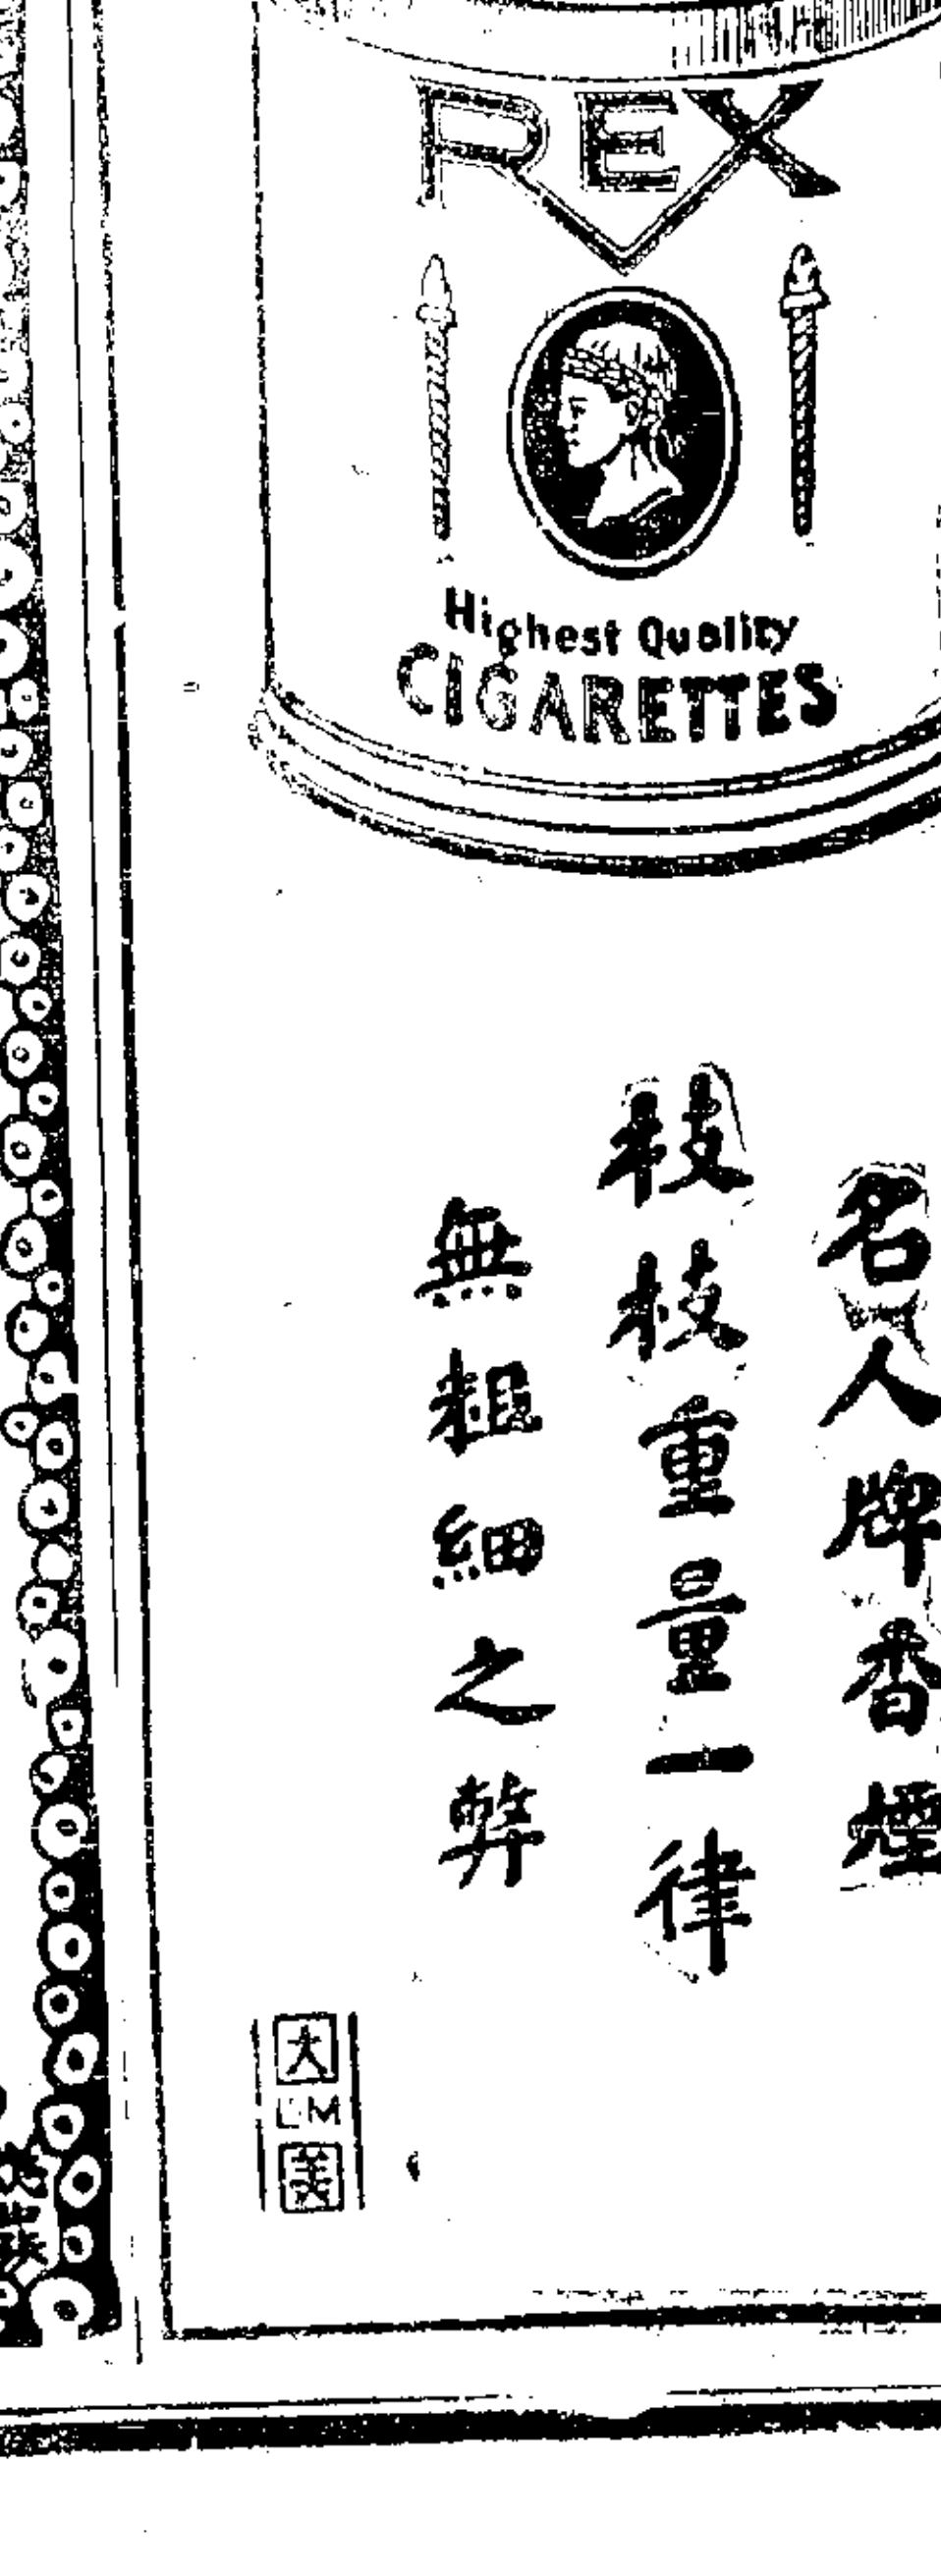 REX
Highest Quality
CIGARETTES
名人牌香煙
枝枝重量一律
無粗細之弊
大
美